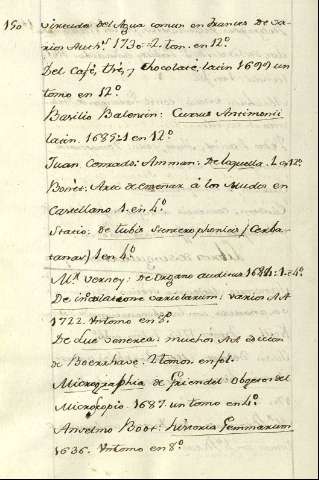 150
virtudes del Agua comun en frances de va-
rios Auth.s 1730 = 2. tom. en 12.º
Del Café, thé, y chocolate, latin 1699 un
tomo en 12.º
Basilio Balentin: Currus Antimonii
latin. 1685 = 1 en 12.º
Juan Conrado: Amman: De loquella. 1. en 12º
Bonet: Arte de enseñar á los Mudos en
Castellano 1. en 4.º
Stacio: de tubis stentorophonicis (Cerba-
tanas) 1 en 4.º
M.r Verney: De Organo auditus 1684: 1. 4.º
De inoculatione variolarum: varios AA
1722. Un tomo en 8.º
De Lue venerea: muchos AA edicion
de Boerehave: 2 tomos en fol.
Micrographia de Griendel: Objetos del
Microscopio. 1687. un tomo en 4.º
Anselmo Boot: historia Gemmarum
1636. Un tomo en 8.º